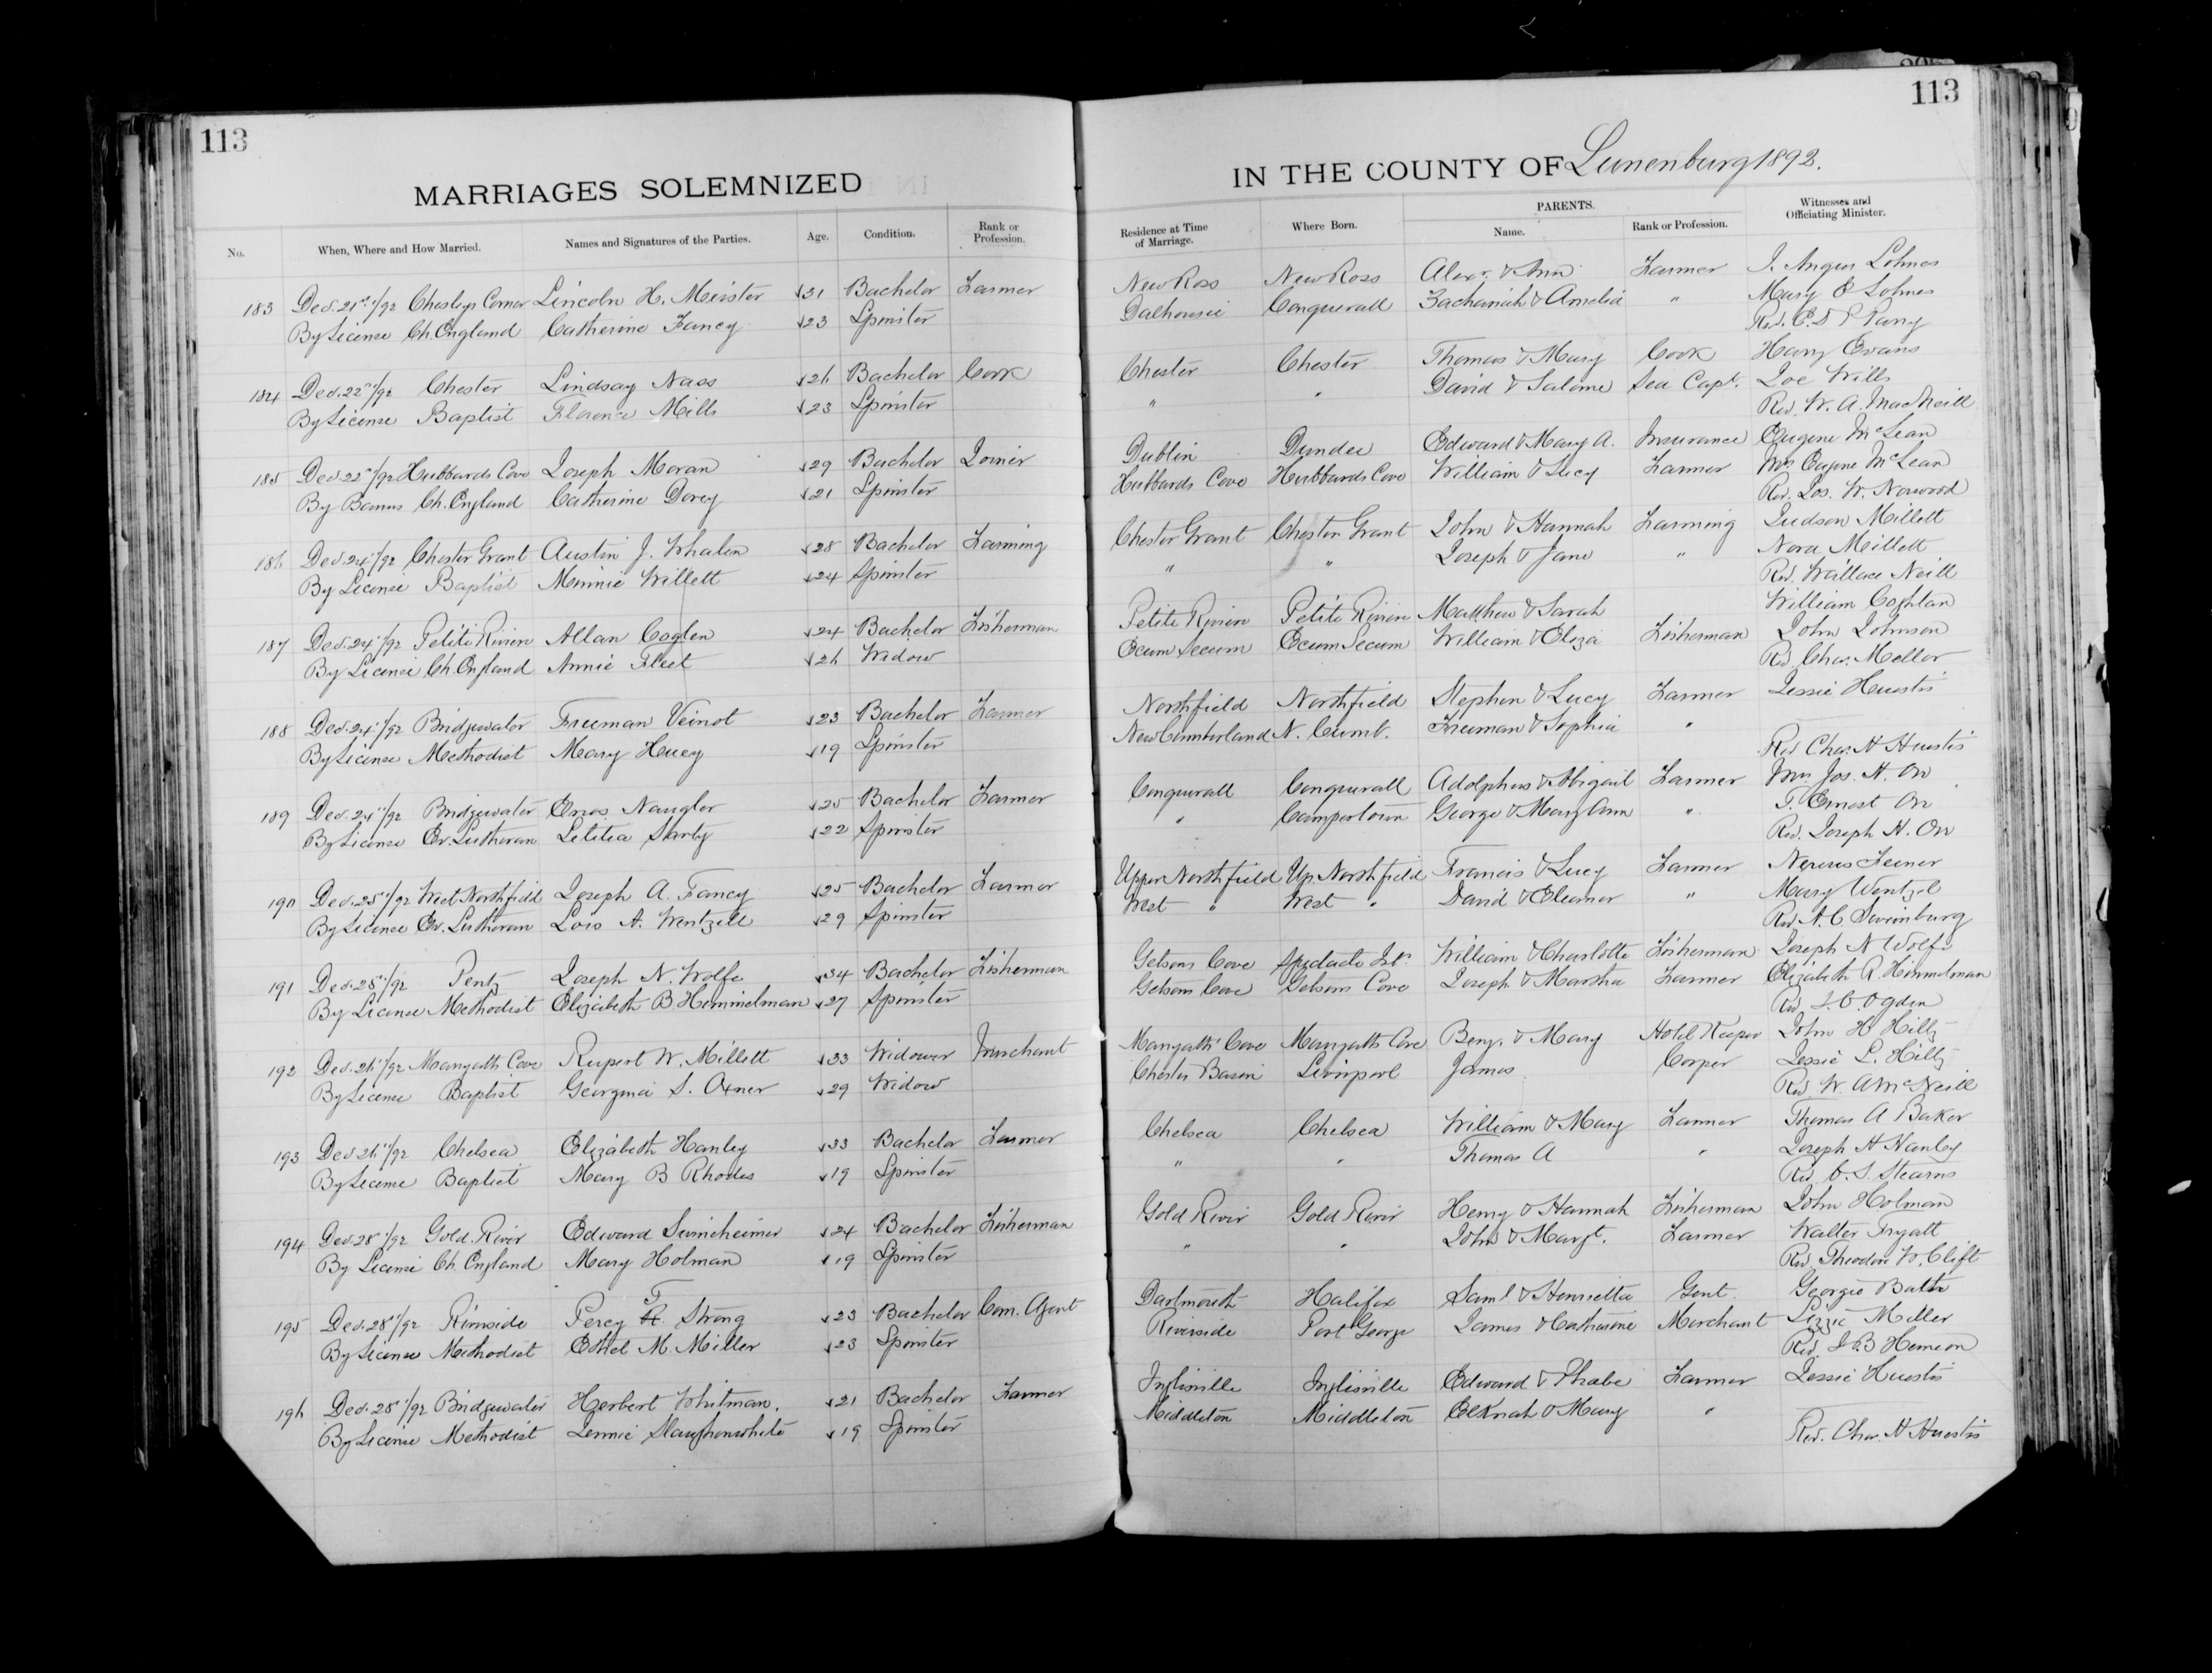 113
113
MARRIAGES SOLEMNIZED
IN THE COUNTY OF Lunenburg 1892.
No. When, Where and How Married. Names and Signatures of the Parties. Age. Condition. Rank or Profession. Residence at Time of Marriage. Where Born. PARENTS. Name. Rank or Profession. Witnesses and Officiating Minister.
183 Dec. 21st/92 Chesleys Corner Lincoln H. Meister 31 Bachelor Farmer New Ross New Ross Alexr. & Ann Farmer J. Angus Lohnes
By License Ch. England Catherine Fancy 23 Spinster Dalhousie Conquerall Zachariah & Amelia " Mary E Lohnes
Rev. Parry
184 Dec. 22nd/92 Chester Lindsay Nass 26 Bachelor Cook Chester Chester Thomas & Mary Cook Harry Evans
By License Baptist Florence Mills 23 Spinster " " David & Salome Sea Capt. Zoe Wills
Rev. W. A. MacNeill
185 Dec. 22nd/92 Hubbards Cove Joseph Moran 29 Bachelor Joiner Dublin Dundee Edward & Mary A. Insurance Eugene McLean
By Banns Ch. England Catherine Dorey 21 Spinster Hubbards Cove Hubbards Cove William & Lucy Farmer Mrs Eugene McLean
Rev. Jos. W. Norwood
186 Dec. 24"/92 Chester Grant Austin J. Whalen 28 Bachelor Farming Chester Grant Chester Grant John & Hannah Farming Judson Millett
By License Baptist Minnie Millett 24 Spinster " " Joseph & Jane " Nora Millett
Rev. Wallace Neill
187 Dec. 24"/92 Petite Riviere Allan Coglen 24 Bachelor Fisherman Petite Riviere Petite Riviere Matthew & Sarah William Coghlan
By License Ch. England Annie Fleet 26 Widow Ecum Secum Ecum Secum William & Eliza Fisherman John Johnson
Rev Chas. Mellor
188 Dec. 24"/92 Bridgewater Freeman Veinot 23 Bachelor Farmer Northfield Northfield Stephen & Lucy Farmer Jessie Huestis
By License Methodist Mary Huey 19 Spinster New Cumberland N. Cumb. Freeman & Sophia "
Rev Chas. H Huestis
189 Dec. 24"/92 Bridgewater Enos Naugler 25 Bachelor Farmer Conquerall Conquerall Adolphus & Abigail Farmer Mrs. Jos. H. Orr
By License Ev. Lutheran Letitia Sarty 22 Spinster " Campertown George & Mary Ann " T. Ernest Orr
Rev. Joseph H. Orr
190 Dec. 25"/92 West Northfield Joseph A. Fancy 25 Bachelor Farmer Upper Northfield Up. Northfield Francis & Lucy Farmer Feener
By License Ev. Lutheran Lois A. Wentzell 29 Spinster West " West " David & Eleanor " Mary Wentzel
Rev.
191 Dec. 25"/92 Pentz Joseph N. Wolfe 34 Bachelor Fisherman Getsons Cove William & Charlotte Fisherman Joseph N Wolfe
By License Methodist Elizabeth B Himmelman 27 Spinster Getsons Cove Getsons Cove Joseph & Martha Farmer Elizabeth R. Himmelman
Rev. J. C. Ogden
192 Dec. 26"/92 Marryatts Cove Rupert W. Millett 33 Widower Merchant Marryatts Cove Marryatts Cove Benj. & Mary Hotel Keeper John H Hiltz
By License Baptist Georgina S. Oxner 29 Widow Chester Basin Liverpool James Cooper Jessie L. Hiltz
Rev W. A McNeill
193 Dec. 26"/92 Chelsea Elizabeth Hanley 33 Bachelor Farmer Chelsea Chelsea William & Mary Farmer Thomas A Baker
By License Baptist Mary B Rhodes 19 Spinster " " Thomas A " Joseph H Hanley
Rev. C. S. Stearns
194 Dec. 28"/92 Gold River Edward Swineheimer 24 Bachelor Fisherman Gold River Gold River Henry & Hannah Fisherman John Holman
By License Ch. England Mary Holman 19 Spinster " " John & Margt. Farmer Walter Fryatt
Rev. Theodore W. Clift
195 Dec. 28"/92 Riverside Percy T. Strong 23 Bachelor Com. Agent Dartmouth Halifax Saml & Henrietta Gent. Georgie Balter
By License Methodist Ethel M. Miller 23 Spinster Riverside Port George James & Catherine Merchant Lizzie Miller
Rev. J. B Hemeon
196 Dec. 28"/92 Bridgewater Herbert Whitman. 21 Bachelor Farmer Inglisville Inglisville Edward & Phebe Farmer Jessie Huestis
By License Methodist Jennie Slaughenwhite 19 Spinster Middleton Middleton Elknah & Mary "
Rev. Chas. H Huestis